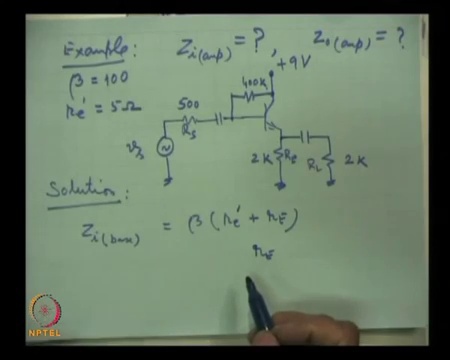 Example: Zi(amp) = ?, Zo(amp) = ?
β = 100
re' = 5Ω
+9V
400K
500
Rs
vs
2K RE
RL 2K
Solution:
Zi(base) = β (re' + rE)
rE
NPTEL